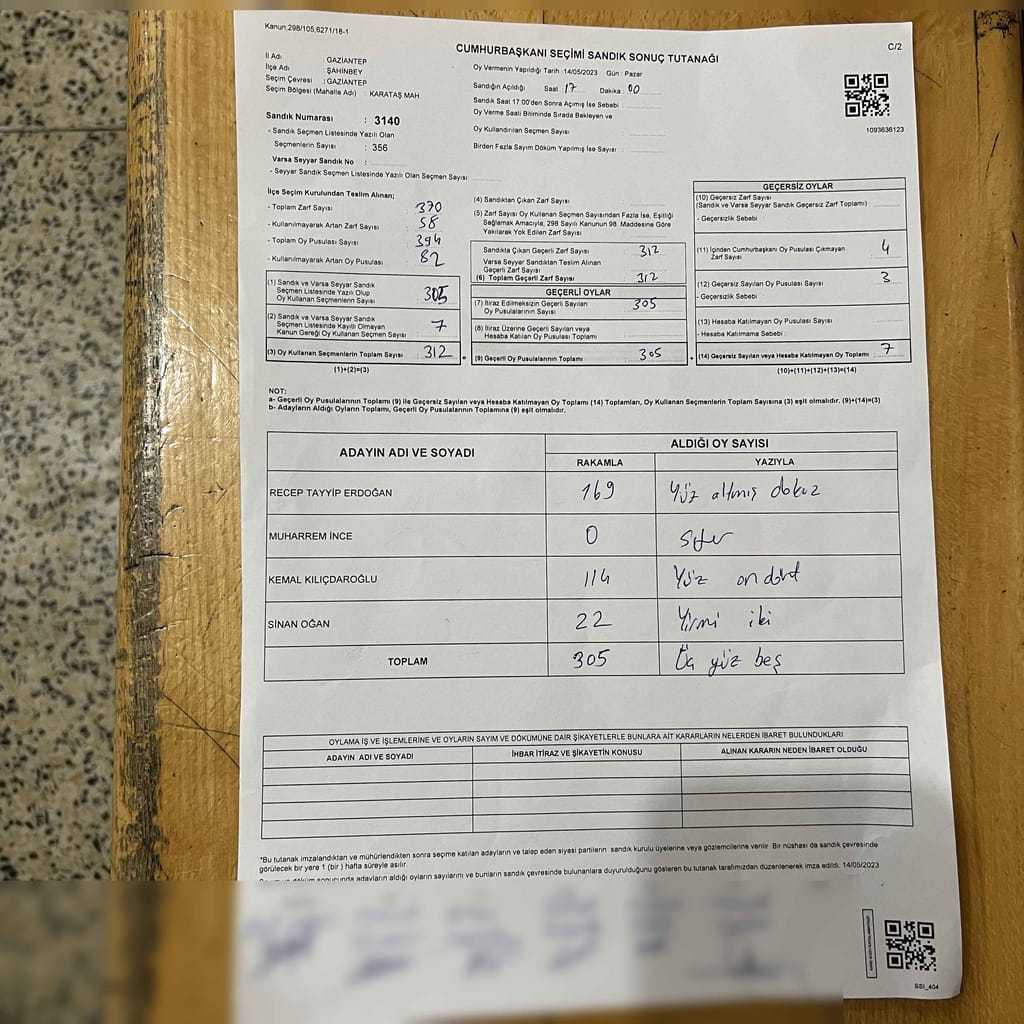 Kanun,298/105,6271/18-1
CUMHURBAŞKANI SEÇİMİ SANDIK SONUÇ TUTANAĞI
C/2
İl Adı : GAZİANTEP
İlçe Adı : ŞAHİNBEY
Seçim Çevresi : GAZİANTEP
Seçim Bölgesi (Mahalle Adı) : KARATAŞ MAH.
Oy Vermenin Yapıldığı Tarih : 14/05/2023 Gün : Pazar
Sandığın Açıldığı Saat : 17 Dakika : 00
Sandık Saat 17:00'den Sonra Açımış İse Sebebi :
Oy Verme Saati Bitiminde Sırada Bekleyen ve
Oy Kullandırılan Seçmen Sayısı :
Birden Fazla Sayım Döküm Yapılmış İse Sayısı :
1093636123
Sandık Numarası : 3140
- Sandık Seçmen Listesinde Yazılı Olan
Seçmenlerin Sayısı : 356
Varsa Seyyar Sandık No :
- Seyyar Sandık Seçmen Listesinde Yazılı Olan Seçmen Sayısı:
İlçe Seçim Kurulundan Teslim Alınan;
- Toplam Zarf Sayısı : 370
- Kullanılmayarak Artan Zarf Sayısı : 58
- Toplam Oy Pusulası Sayısı : 394
- Kullanılmayarak Artan Oy Pusulası : 82
(1) Sandık ve Varsa Seyyar Sandık
Seçmen Listesinde Yazılı Olup
Oy Kullanan Seçmenlerin Sayısı : 305
(2) Sandık ve Varsa Seyyar Sandık
Seçmen Listesinde Kayıtlı Olmayan
Kanun Gereği Oy Kullanan Seçmen Sayısı : 7
(3) Oy Kullanan Seçmenlerin Toplam Sayısı : 312
(1)+(2)=(3)
(4) Sandıktan Çıkan Zarf Sayısı :
(5) Zarf Sayısı Oy Kullanan Seçmen Sayısından Fazla İse, Eşitliği
Sağlamak Amacıyla, 298 Sayılı Kanunun 98. Maddesine Göre
Yakılarak Yok Edilen Zarf Sayısı :
Sandıkta Çıkan Geçerli Zarf Sayısı : 312
Varsa Seyyar Sandıktan Teslim Alınan
Geçerli Zarf Sayısı :
(6) Toplam Geçerli Zarf Sayısı : 312
GEÇERLİ OYLAR
(7) İtiraz Edilmeksizin Geçerli Sayılan
Oy Pusulalarının Sayısı : 305
(8) İtiraz Üzerine Geçerli Sayılan veya
Hesaba Katılan Oy Pusulası Toplamı :
(9) Geçerli Oy Pusulalarının Toplamı : 305
GEÇERSİZ OYLAR
(10) Geçersiz Zarf Sayısı
(Sandık ve Varsa Seyyar Sandık Geçersiz Zarf Toplamı) :
- Geçersizlik Sebebi :
(11) İçinden Cumhurbaşkanı Oy Pusulası Çıkmayan
Zarf Sayısı : 4
(12) Geçersiz Sayılan Oy Pusulası Sayısı : 3
- Geçersizlik Sebebi :
(13) Hesaba Katılmayan Oy Pusulası Sayısı :
- Hesaba Katılmama Sebebi :
(14) Geçersiz Sayılan veya Hesaba Katılmayan Oy Toplamı : 7
(10)+(11)+(12)+(13)=(14)
NOT:
a- Geçerli Oy Pusulalarının Toplamı (9) ile Geçersiz Sayılan veya Hesaba Katılmayan Oy Toplamı (14) Toplamları, Oy Kullanan Seçmenlerin Toplam Sayısına (3) eşit olmalıdır. (9)+(14)=(3)
b- Adayların Aldığı Oyların Toplamı, Geçerli Oy Pusulalarının Toplamına (9) eşit olmalıdır.
ADAYIN ADI VE SOYADI
ALDIĞI OY SAYISI
RAKAMLA YAZIYLA
RECEP TAYYİP ERDOĞAN 169 Yüz altmış dokuz
MUHARREM İNCE 0 Sıfır
KEMAL KILIÇDAROĞLU 114 Yüz on dört
SİNAN OĞAN 22 Yirmi iki
TOPLAM 305 Üç yüz beş
OYLAMA İŞ VE İŞLEMLERİNE VE OYLARIN SAYIM VE DÖKÜMÜNE DAİR ŞİKAYETLERLE BUNLARA AİT KARARLARIN NELERDEN İBARET BULUNDUKLARI
ADAYIN ADI VE SOYADI İHBAR İTİRAZ VE ŞİKAYETİN KONUSU ALINAN KARARIN NEDEN İBARET OLDUĞU
*Bu tutanak imzalandıktan ve mühürlendikten sonra seçime katılan adayların ve talep eden siyasi partilerin sandık kurulu üyelerine veya gözlemcilerine verilir. Bir nüshası da sandık çevresinde
görülecek bir yere 1 (bir) hafta süreyle asılır.
döküm sonucunda adayların aldığı oyların sayılarını ve bunların sandık çevresinde bulunanlara duyurulduğunu gösteren bu tutanak tarafımızdan düzenlenerek imza edildi. 14/05/2023
SSI_404